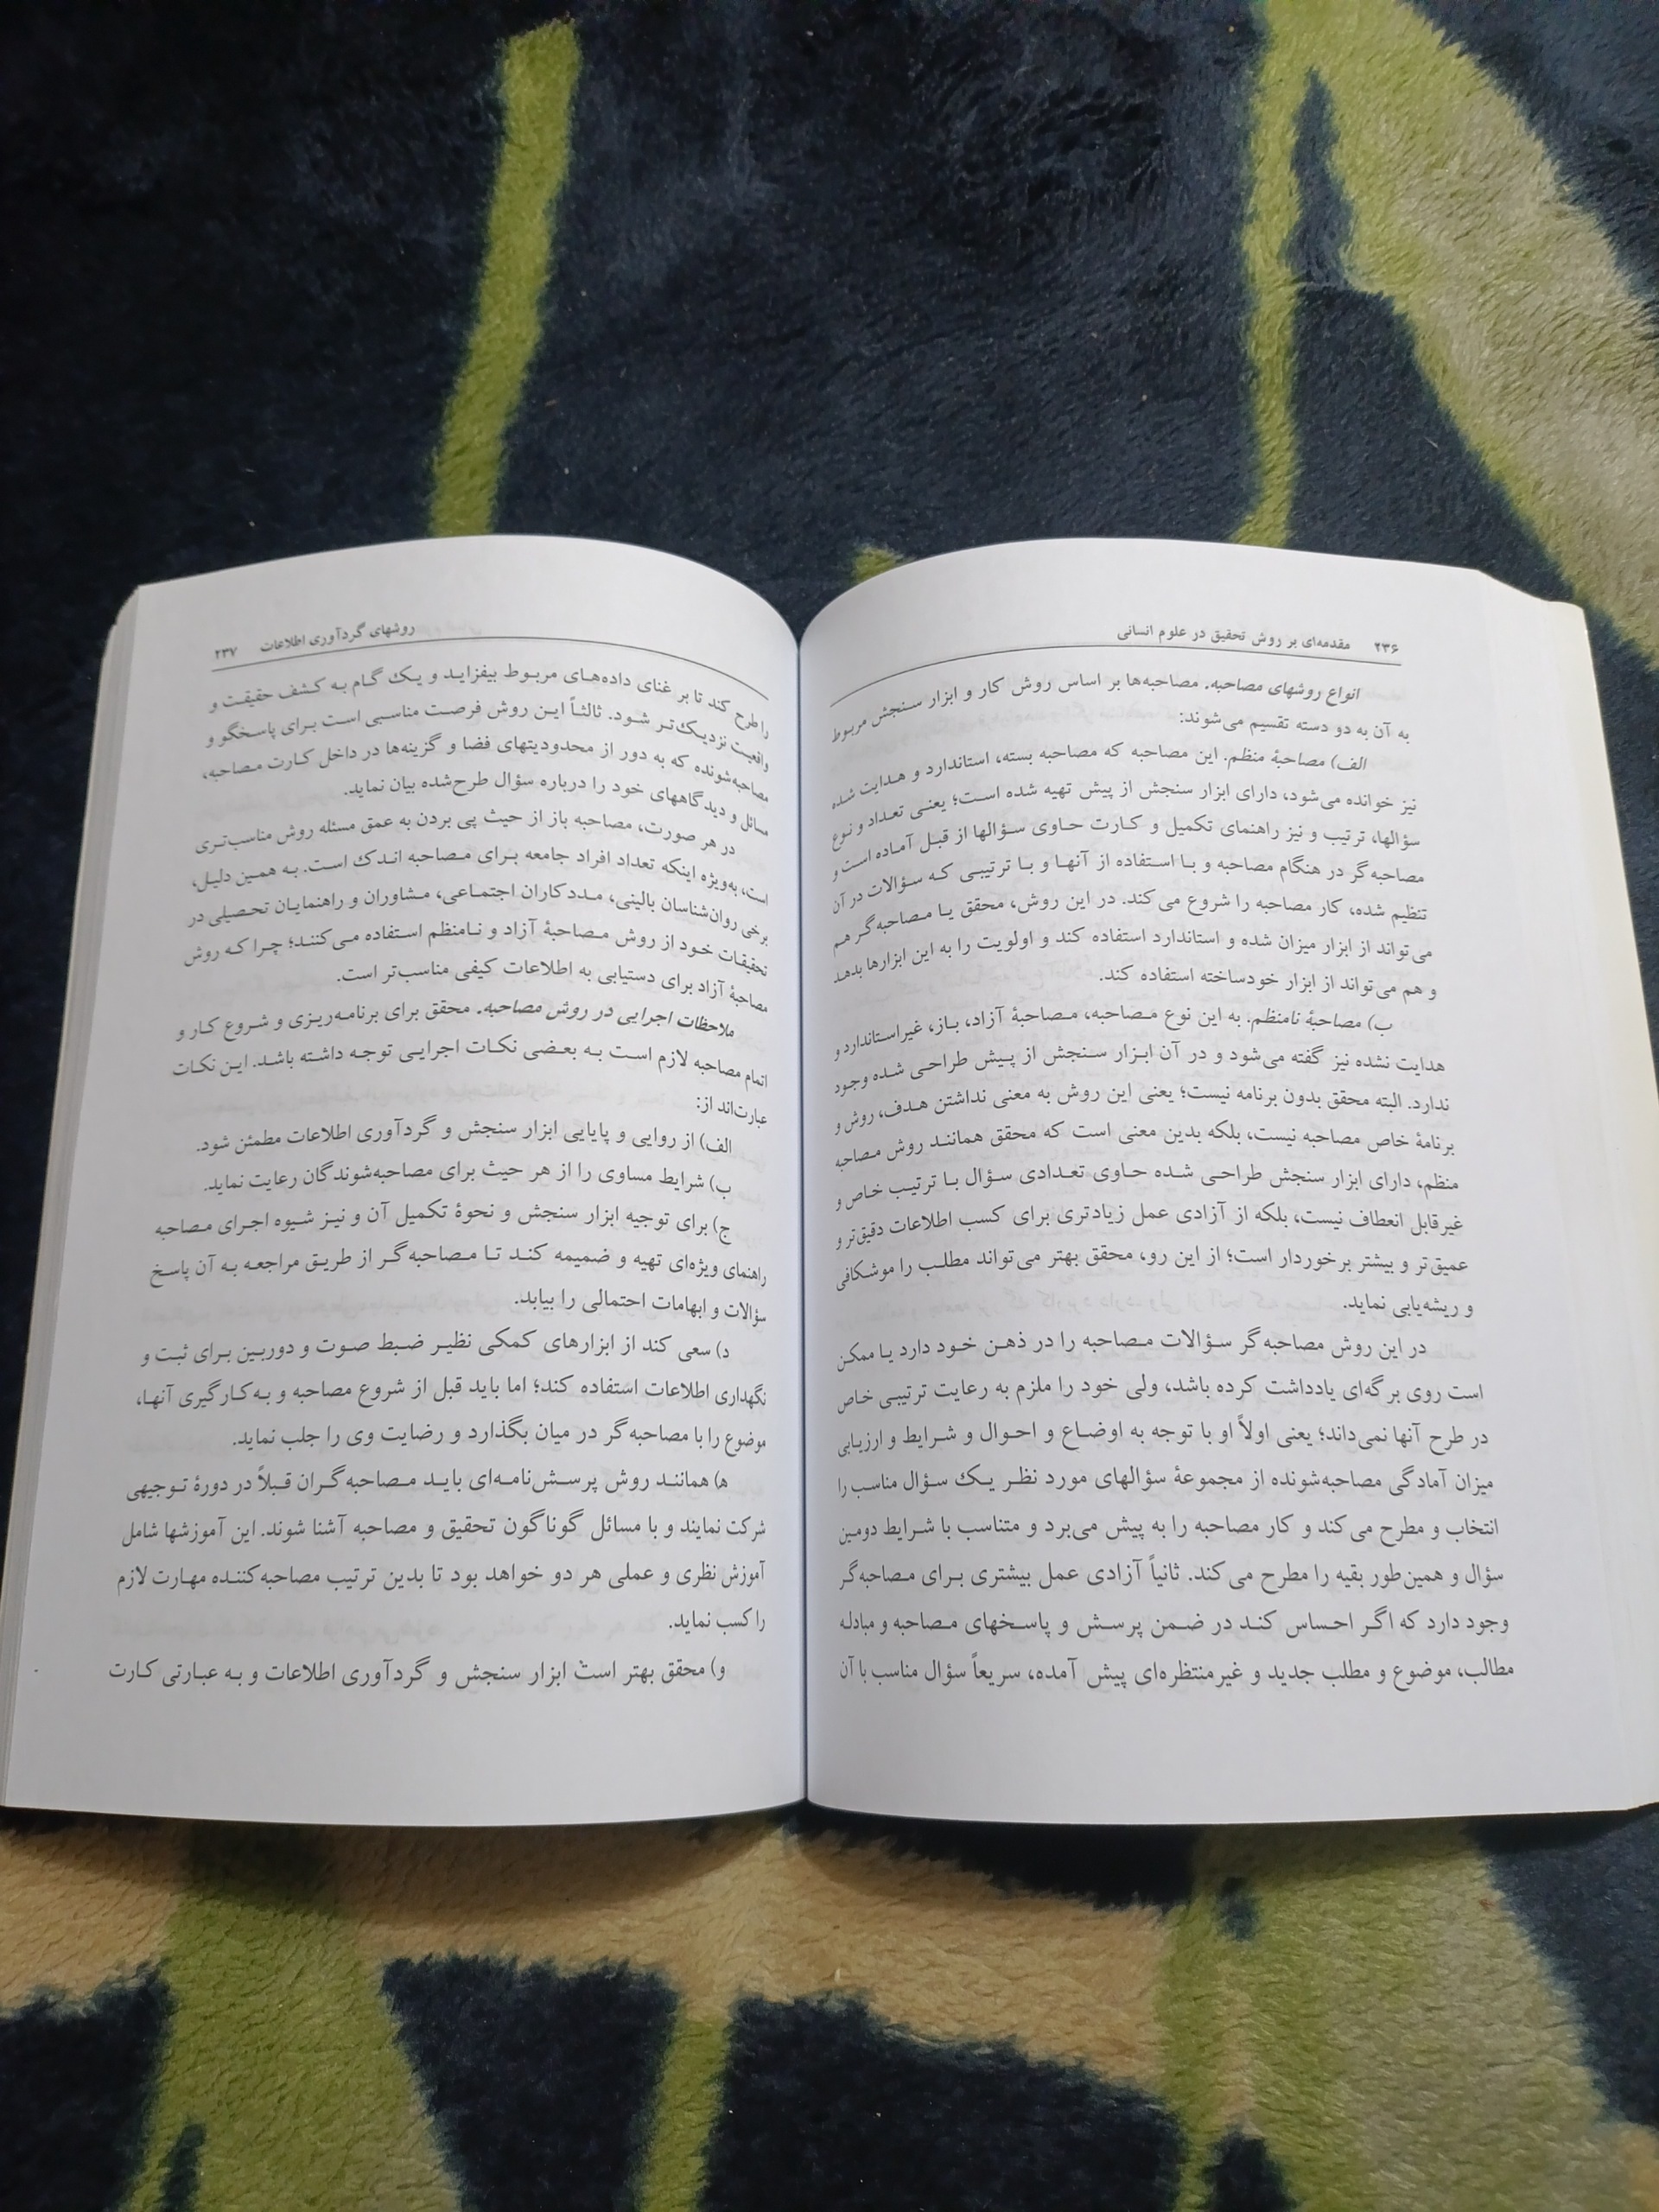 ۲۳۶ مقدمه‌ای بر روش تحقیق در علوم انسانی
انواع روشهای مصاحبه. مصاحبه‌ها بر اساس روش کار و ابزار سنجش مربوط
به آن به دو دسته تقسیم می‌شوند:
الف) مصاحبهٔ منظم. این مصاحبه که مصاحبه بسته، استاندارد و هدایت شده
نیز خوانده می‌شود، دارای ابزار سنجش از پیش تهیه شده است؛ یعنی تعداد و نوع
سؤالها، ترتیب و نیز راهنمای تکمیل و کارت حاوی سؤالها از قبل آماده است و
مصاحبه‌گر در هنگام مصاحبه و با استفاده از آنها و با ترتیبی که سؤالات در آن
تنظیم شده، کار مصاحبه را شروع می‌کند. در این روش، محقق یا مصاحبه‌گر هم
می‌تواند از ابزار میزان شده و استاندارد استفاده کند و اولویت را به این ابزارها بدهد
و هم می‌تواند از ابزار خودساخته استفاده کند.
ب) مصاحبهٔ نامنظم. به این نوع مصاحبه، مصاحبهٔ آزاد، باز، غیراستاندارد و
هدایت نشده نیز گفته می‌شود و در آن ابزار سنجش از پیش طراحی شده وجود
ندارد. البته محقق بدون برنامه نیست؛ یعنی این روش به معنی نداشتن هدف، روش و
برنامهٔ خاص مصاحبه نیست، بلکه بدین معنی است که محقق همانند روش مصاحبه
منظم، دارای ابزار سنجش طراحی شده حاوی تعدادی سؤال با ترتیب خاص و
غیرقابل انعطاف نیست، بلکه از آزادی عمل زیادتری برای کسب اطلاعات دقیق‌تر و
عمیق‌تر و بیشتر برخوردار است؛ از این رو، محقق بهتر می‌تواند مطلب را موشکافی
و ریشه‌یابی نماید.
در این روش مصاحبه‌گر سؤالات مصاحبه را در ذهن خود دارد یا ممکن
است روی برگه‌ای یادداشت کرده باشد، ولی خود را ملزم به رعایت ترتیبی خاص
در طرح آنها نمی‌داند؛ یعنی اولاً او با توجه به اوضاع و احوال و شرایط و ارزیابی
میزان آمادگی مصاحبه‌شونده از مجموعهٔ سؤالهای مورد نظر یک سؤال مناسب را
انتخاب و مطرح می‌کند و کار مصاحبه را به پیش می‌برد و متناسب با شرایط دومین
سؤال و همین‌طور بقیه را مطرح می‌کند. ثانیاً آزادی عمل بیشتری برای مصاحبه‌گر
وجود دارد که اگر احساس کند در ضمن پرسش و پاسخهای مصاحبه و مبادله
مطالب، موضوع و مطلب جدید و غیرمنتظره‌ای پیش آمده، سریعاً سؤال مناسب با آن
روشهای گردآوری اطلاعات ۲۳۷
را طرح کند تا بر غنای داده‌های مربوط بیفزاید و یک گام به کشف حقیقت و
واقعیت نزدیک‌تر شود. ثالثاً این روش فرصت مناسبی است برای پاسخگو و
مصاحبه‌شونده که به دور از محدودیتهای فضا و گزینه‌ها در داخل کارت مصاحبه،
مسائل و دیدگاههای خود را درباره سؤال طرح‌شده بیان نماید.
در هر صورت، مصاحبه باز از حیث پی بردن به عمق مسئله روش مناسب‌تری
است، به‌ویژه اینکه تعداد افراد جامعه برای مصاحبه اندک است. به همین دلیل،
برخی روان‌شناسان بالینی، مددکاران اجتماعی، مشاوران و راهنمایان تحصیلی در
تحقیقات خود از روش مصاحبهٔ آزاد و نامنظم استفاده می‌کنند؛ چرا که روش
مصاحبهٔ آزاد برای دستیابی به اطلاعات کیفی مناسب‌تر است.
ملاحظات اجرایی در روش مصاحبه. محقق برای برنامه‌ریزی و شروع کار و
اتمام مصاحبه لازم است به بعضی نکات اجرایی توجه داشته باشد. این نکات
عبارت‌اند از:
الف) از روایی و پایایی ابزار سنجش و گردآوری اطلاعات مطمئن شود.
ب) شرایط مساوی را از هر حیث برای مصاحبه‌شوندگان رعایت نماید.
ج) برای توجیه ابزار سنجش و نحوهٔ تکمیل آن و نیز شیوه اجرای مصاحبه
راهنمای ویژه‌ای تهیه و ضمیمه کند تا مصاحبه‌گر از طریق مراجعه به آن پاسخ
سؤالات و ابهامات احتمالی را بیابد.
د) سعی کند از ابزارهای کمکی نظیر ضبط صوت و دوربین برای ثبت و
نگهداری اطلاعات استفاده کند؛ اما باید قبل از شروع مصاحبه و به‌کارگیری آنها،
موضوع را با مصاحبه‌گر در میان بگذارد و رضایت وی را جلب نماید.
ه) همانند روش پرسش‌نامه‌ای باید مصاحبه‌گران قبلاً در دورهٔ توجیهی
شرکت نمایند و با مسائل گوناگون تحقیق و مصاحبه آشنا شوند. این آموزشها شامل
آموزش نظری و عملی هر دو خواهد بود تا بدین ترتیب مصاحبه‌کننده مهارت لازم
را کسب نماید.
و) محقق بهتر است ابزار سنجش و گردآوری اطلاعات و به عبارتی کارت